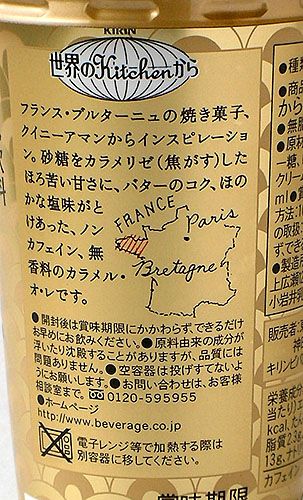 KIRIN
世界のKitchenから
フランス・ブルターニュの焼き菓子、
クイニーアマンからインスピレーショ
ン。砂糖をカラメリゼ(焦がす)した
ほろ苦い甘さに、バターのコク、ほの
かな塩味がと
けあった、ノン
カフェイン、無
香料のカラメル・
オ・レです。
FRANCE
Paris
Bretagne
●開封後は賞味期限にかかわらず、できるだけ
お早めにお飲みください。●原料由来の成分が
浮いたり沈殿することがありますが、品質には
問題ありません。●空容器は投げすてないよ
うにお願いします。●お問い合わせは、お客様
相談室まで。0120-595955
●ホームページ
http://www.beverage.co.jp
電子レンジ等で加熱する際は
別容器に移してください。
賞味期限
●種
●商品
から
●無脂
●原材
一糖、
クリーム
ml●賞
方法:
の取扱
ずでき
●製造
上広瀬
小岩井
販売者
神
キリンビ
栄養成分
当たり)
kcal、た
脂質2.
13g、ナ
カフェイ